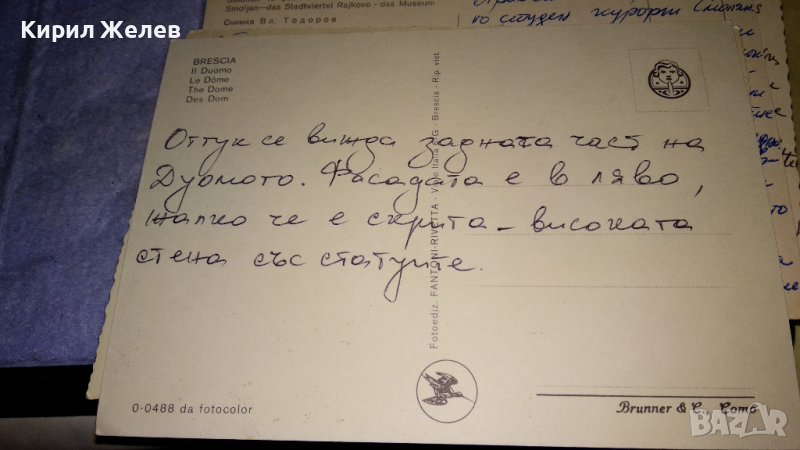 Кирил Желев
Smoljan—das Stadtviertel Rajkovo - das Museum
Снимка Вл. Тодоров
BRESCIA
Il Duomo
Le Dôme
The Dome
Des Dom
Оттук се вижда задната част на
Дуомото. Фасадата е в ляво,
жалко че е скрита - високата
стена със статуите.
Fotoediz. FANTONI-RIVETTA - Brescia - Rip. viet.
0-0488 da fotocolor
Brunner & C. Como
BAZAR